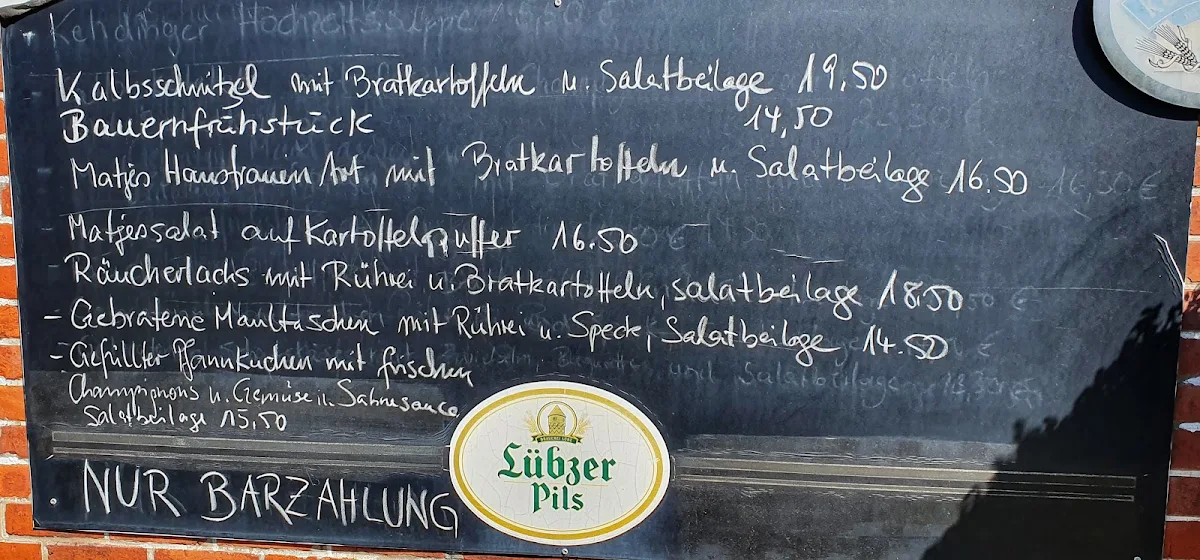 Kehdinger Hochzeitssuppe
Kalbsschnitzel mit Bratkartoffeln u. Salatbeilage 19,50
Bauernfrühstück 14,50
Matjes Hausfrauen Art mit Bratkartoffeln u. Salatbeilage 16.50
Matjessalat auf Kartoffelpuffer 16.50
- Räucherlachs mit Rührei u. Bratkartoffeln, Salatbeilage 18.50
- Gebratene Maultaschen mit Rührei u. Speck, Salatbeilage 14.50
- Gefüllter Pfannkuchen mit frischen
Champignons u. Gemüse in Sahnesauce
Salatbeilage 15,50
NUR BARZAHLUNG
Lübzer
Pils